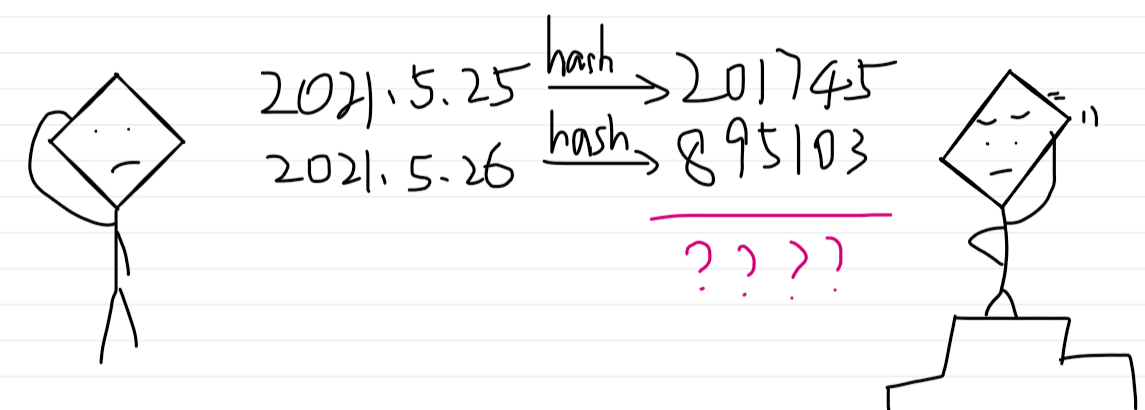 2021.5.25 hash 201745
2021.5.26 hash 895103
????